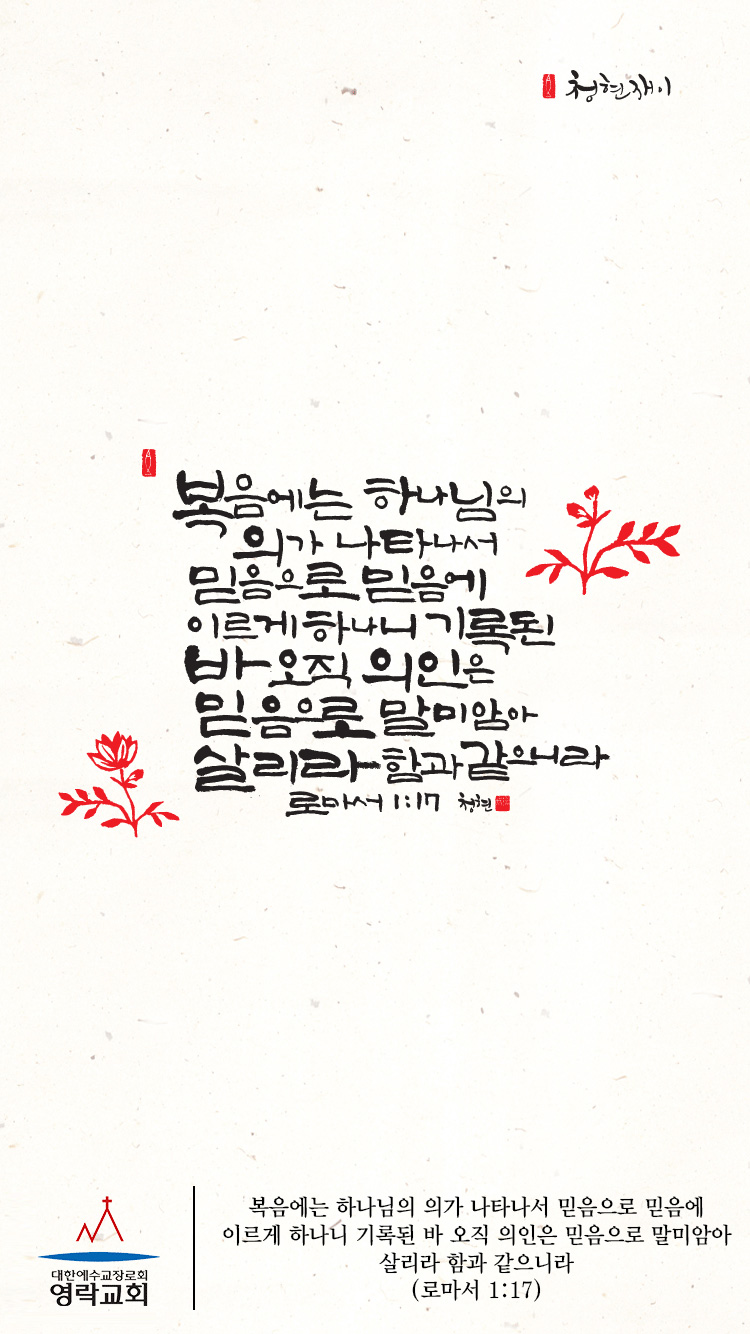 청현재이
복음에는 하나님의
의가 나타나서
믿음으로 믿음에
이르게 하나니 기록된
바 오직 의인은
믿음으로 말미암아
살리라 함과 같으니라
로마서 1:17 청현
대한예수교장로회
영락교회
복음에는 하나님의 의가 나타나서 믿음으로 믿음에
이르게 하나니 기록된 바 오직 의인은 믿음으로 말미암아
살리라 함과 같으니라
(로마서 1:17)